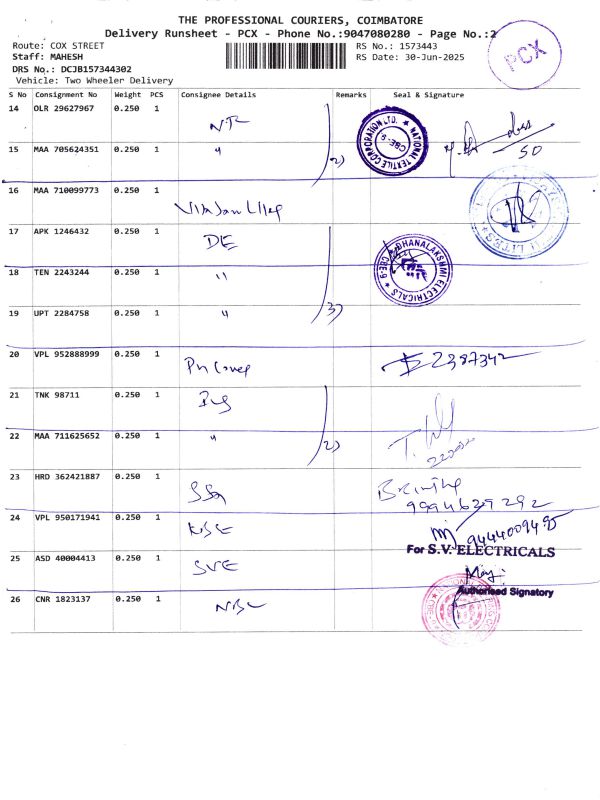 THE PROFESSIONAL COURIERS, COIMBATORE
Delivery Runsheet - PCX - Phone No.:9047080280 - Page No.:2
Route: COX STREET
RS No.: 1573443
Staff: MAHESH
RS Date: 30-Jun-2025
DRS No.: DCJB157344302
Vehicle: Two Wheeler Delivery
PCX
S No Consignment No Weight PCS Consignee Details Remarks Seal & Signature
14 OLR 29627967 0.250 1
NATIONAL TEXTILE CORPORATION LTD. CBE-9
15 MAA 705624351 0.250 1 " 2)
50
16 MAA 710099773 0.250 1
17 APK 1246432 0.250 1 DE
DHANALAKSHMI ELECTRICALS CBE-9
18 TEN 2243244 0.250 1 "
19 UPT 2284758 0.250 1 " 3)
20 VPL 952888999 0.250 1
2387342
21 TNK 98711 0.250 1
22 MAA 711625652 0.250 1 " 2)
23 HRD 362421887 0.250 1
9994639292
24 VPL 950171941 0.250 1
9444009495
For S.V. ELECTRICALS
25 ASD 40004413 0.250 1 SVE
Authorised Signatory
26 CNR 1823137 0.250 1